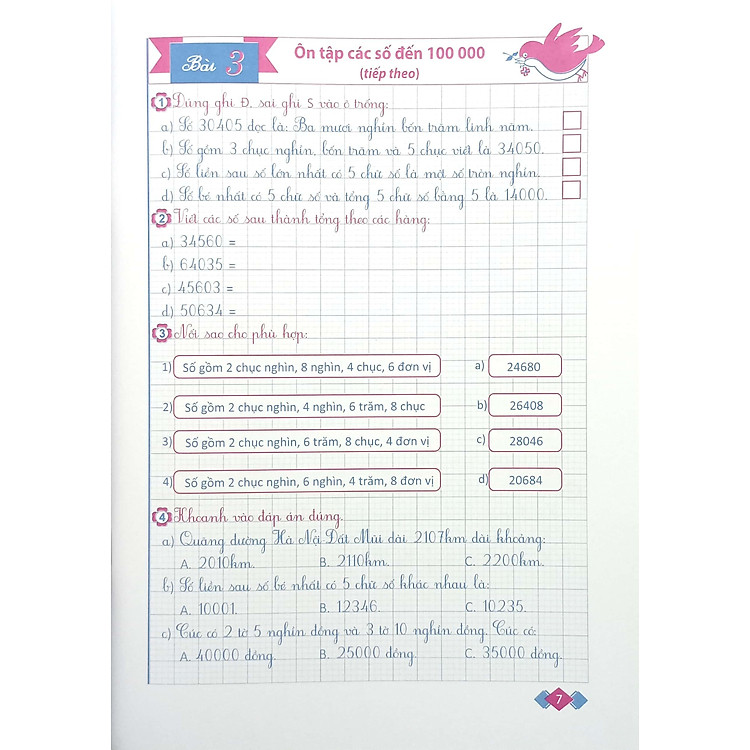 Bài 3
Ôn tập các số đến 100 000
(tiếp theo)
1 Đúng ghi Đ, sai ghi S vào ô trống:
a) Số 30405 đọc là: Ba mươi nghìn bốn trăm linh năm.
b) Số gồm 3 chục nghìn, bốn trăm và 5 chục viết là 34050.
c) Số liền sau số lớn nhất có 5 chữ số là một số tròn nghìn.
d) Số bé nhất có 5 chữ số và tổng 5 chữ số bằng 5 là 14000.
2 Viết các số sau thành tổng theo các hàng:
a) 34560 =
b) 64035 =
c) 45603 =
d) 50634 =
3 Nối sao cho phù hợp:
1) Số gồm 2 chục nghìn, 8 nghìn, 4 chục, 6 đơn vị a) 24680
2) Số gồm 2 chục nghìn, 4 nghìn, 6 trăm, 8 chục b) 26408
3) Số gồm 2 chục nghìn, 6 trăm, 8 chục, 4 đơn vị c) 28046
4) Số gồm 2 chục nghìn, 6 nghìn, 4 trăm, 8 đơn vị d) 20684
4 Khoanh vào đáp án đúng.
a) Quãng đường Hà Nội Đất Mũi dài 2107km dài khoảng:
A. 2010km. B. 2110km. C. 2200km.
b) Số liền sau số bé nhất có 5 chữ số khác nhau là:
A. 10001. B. 12346. C. 10235.
c) Cúc có 2 tờ 5 nghìn đồng và 3 tờ 10 nghìn đồng. Cúc có:
A. 40000 đồng. B. 25000 đồng. C. 35000 đồng.
7